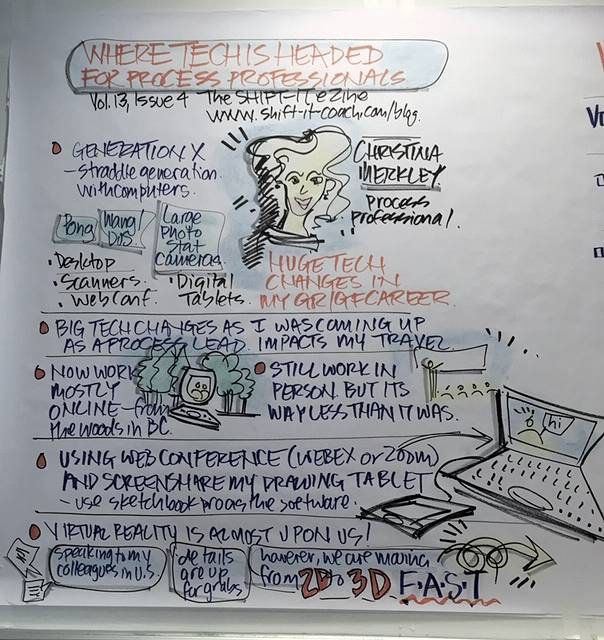 WHERE TECH IS HEADED
FOR PROCESS PROFESSIONALS
Vol. 13, Issue 4 The SHIFT-IT eZine
www.shift-it-coach.com/blog.
GENERATION X
- straddle generation
with computers.
Pong
Wang/
DOS
Large
Photo
Stat
Cameras.
• Desktop
• Scanners.
• Web Conf.
• Digital
Tablets.
CHRISTINA
MERKLEY
Process
Professional.
HUGE TECH
CHANGES IN
MY GR/GF CAREER.
BIG TECH CHANGES AS I WAS COMING UP
AS A PROCESS LEAD. IMPACTS MY TRAVEL
NOW WORK
MOSTLY
ONLINE - from
the woods in BC.
STILL WORK IN
PERSON. BUT ITS
WAY LESS THAN IT WAS.
USING WEB CONFERENCE (WEBEX or ZOOM)
AND SCREENSHARE MY DRAWING TABLET
- use sketchbook pro as the software.
hi
VIRTUAL REALITY IS ALMOST UPON US!
speaking to my
colleagues in U.S.
details
are up
for grabs
however, we are moving
from 2D to 3D F.A.S.T